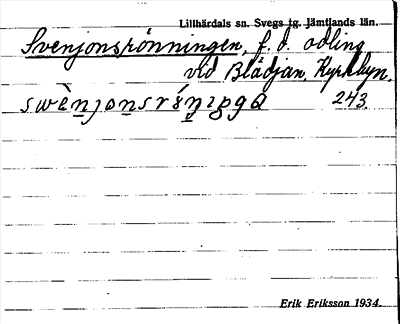 Lillhärdals sn. Svegs tg. Jämtlands län.
Svenjonsrönningen, f. d. odling
vid Blädjan, Kyrkbyn.
243.
Erik Eriksson 1934.